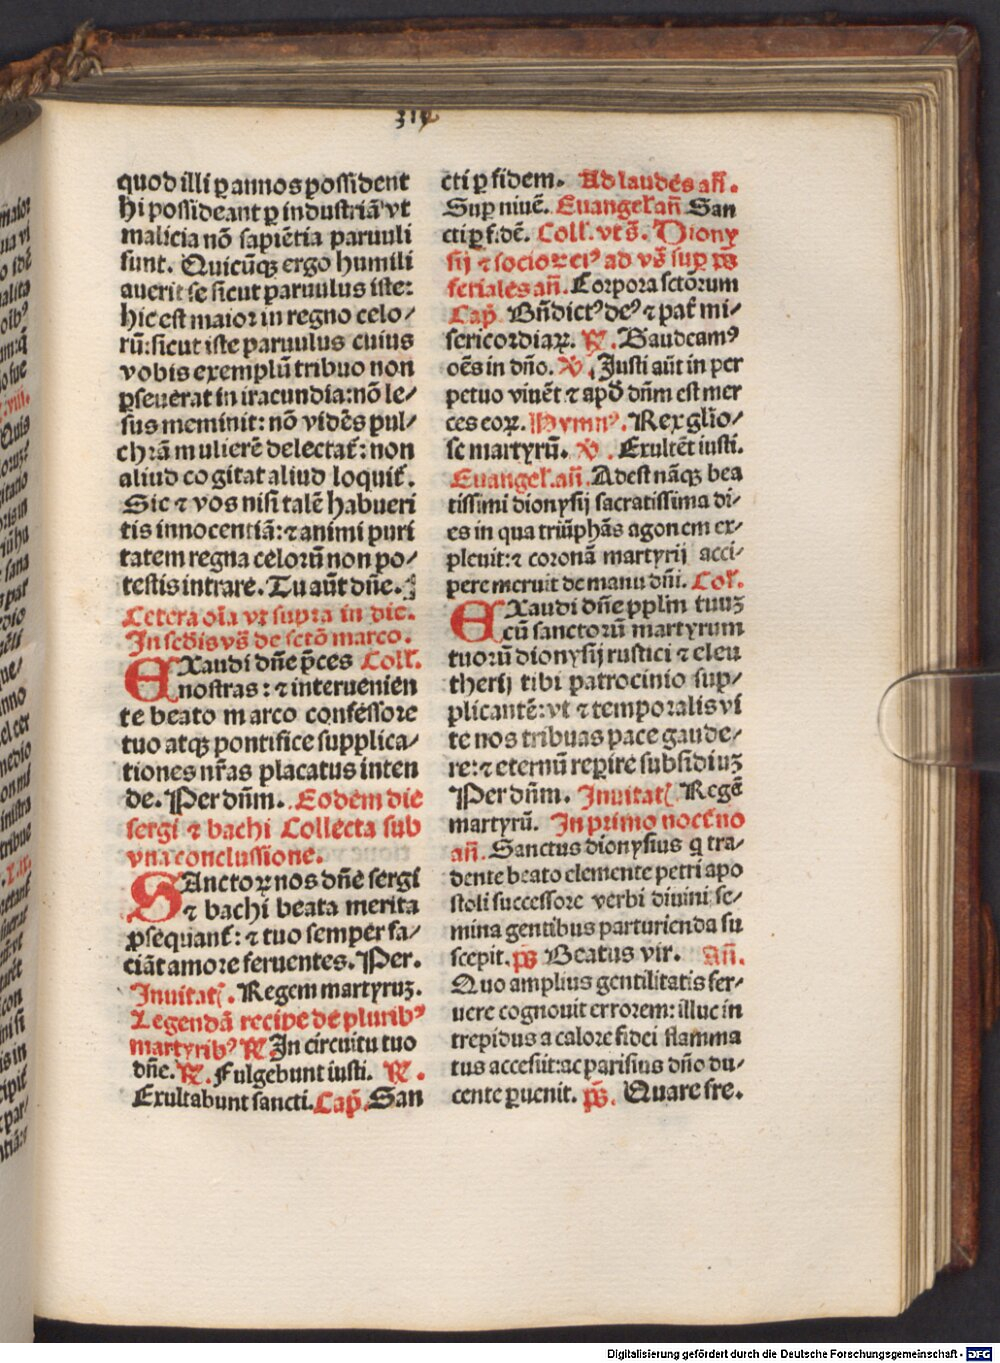 quod illi ꝑ annos possident
hi possideant ꝑ industriā vt
malicia nō sapiētia paruuli
sunt. Quicūqꝫ ergo humili
auerit se sicut paruulus iste:
hic est maior in regno celo/
rū: sicut iste paruulus cuius
vobis exemplū tribuo non
ꝑseuerat in iracundia: nō le/
sus meminit: nō vidēs pul/
chrā mulierē delectat̄: non
aliud cogitat aliud loquit̄.
Sic ⁊ vos nisi talē habueri
tis innocentiā: ⁊ animi puri
tatem regna celorū non po/
testis intrare. Tu aūt dñe.
Cetera oīa vt supra in die.
In scd̄is vs̄ de sctō marco.
EXaudi dñe p̄ces Coll̄.
nostras: ⁊ interuenien
te beato marco confessore
tuo atqꝫ pontifice supplica/
tiones nr̄as placatus inten
de. Per dn̄m. Eodem die
sergi ⁊ bachi Collecta sub
vna conclussione.
SAnctoꝝ nos dñe sergi
⁊ bachi beata merita
ꝓsequant̄: ⁊ tuo semper fa/
ciāt amore feruentes. Per.
Inuitat̄. Regem martyruꝫ.
Legendā recipe de pluribꝰ
martyribꝰ ℟ In circuitu tuo
dñe. ℟. Fulgebunt iusti. ℟.
Exultabunt sancti. Cap̄. San
cti ꝑ fidem. Ad laudes añ.
Suꝑ niuē. Euangel̄ añ San
cti ꝑ fidē. Coll̄. vt s̄. Diony
sij ⁊ socioꝝ eiꝰ ad vs̄ suꝑ ps̄
feriales añ. Corpora sctōrum
Cap̄ Bñdictꝰ deꝰ ⁊ pat̄ mi/
sericordiaꝝ. ℟. Gaudeamꝰ
oēs in dño. ℣. Justi aūt in per
petuo viuēt ⁊ apd̄ dñm est mer
ces eoꝝ. Hymnꝰ. Rex glīo/
se martyrū. ℣. Exultēt iusti.
Euangel̄. añ. Adest nāqꝫ bea
tissimi dionysij sacratissima di/
es in qua triūphās agonem ex/
pleuit: ⁊ coronā martyrij acci/
pere meruit de manu dñi. Col̄.
EXaudi dñe pplm tuuꝫ
cū sanctorū martyrum
tuorū dionysij rustici ⁊ eleu
therij tibi patrocinio sup/
plicantē: vt ⁊ temporalis vi
te nos tribuas pace gaude/
re: ⁊ eternū reperire subsidiuꝫ
Per dñm. Inuitat̄ Regē
martyrū. In primo noct̄no
añ. Sanctus dionysius q̄ tra/
dente beato clemente petri apo
stoli successore verbi diuini se/
mina gentibus parturienda su
scepit. ps̄ Beatus vir. Añ.
Quo amplius gentilitatis fer/
uere cognouit errorem: illuc in
trepidus accessit calore fidei flamma
tus accesīt: ac parisius dño du/
cente ꝑuenit. ps̄. Quare fre.
Digitalisierung gefördert durch die Deutsche Forschungsgemeinschaft - DFG